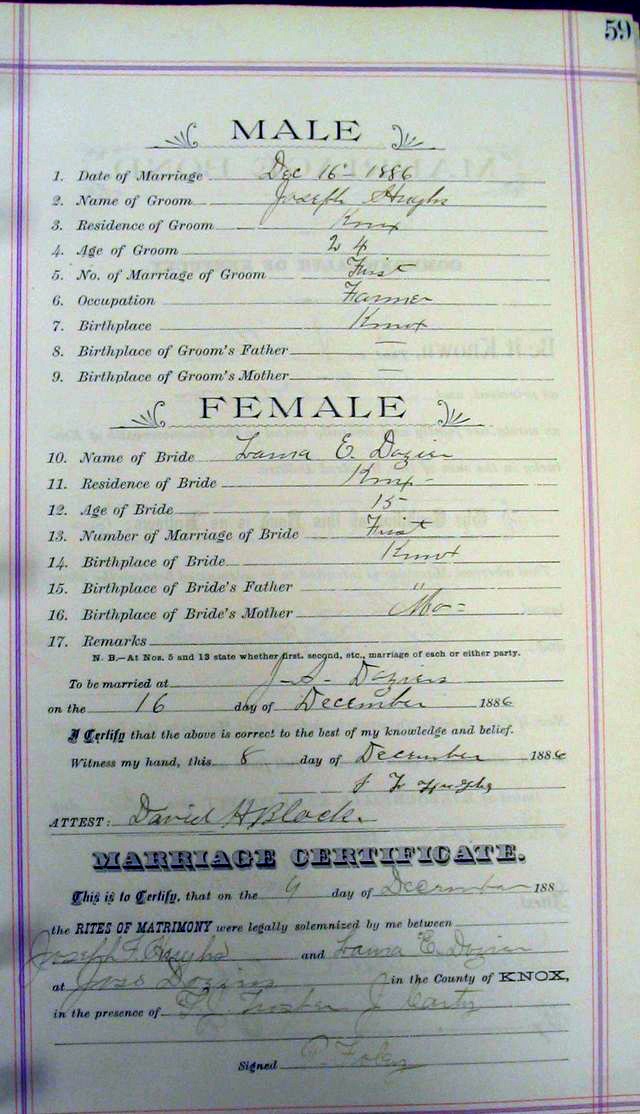 59
MALE
1. Date of Marriage Dec 16 1886
2. Name of Groom Joseph Hughs
3. Residence of Groom Knox
4. Age of Groom 24
5. No. of Marriage of Groom First
6. Occupation Farmer
7. Birthplace Knox
8. Birthplace of Groom's Father —
9. Birthplace of Groom's Mother —
FEMALE
10. Name of Bride Laura E. Dozier
11. Residence of Bride Knox
12. Age of Bride 15
13. Number of Marriage of Bride First
14. Birthplace of Bride Knox
15. Birthplace of Bride's Father "
16. Birthplace of Bride's Mother Mo
17. Remarks
N. B.—At Nos. 5 and 13 state whether first, second, etc., marriage of each or either party.
To be married at J. S. Doziers
on the 16 day of December 1886
I Certify that the above is correct to the best of my knowledge and belief.
Witness my hand, this 8 day of December 1886
J F Hughs
ATTEST: David H Block
MARRIAGE CERTIFICATE.
This is to Certify, that on the day of December 188
the RITES OF MATRIMONY were legally solemnized by me between
Joseph F. Hughs and Laura E. Dozier
at Doziers in the County of KNOX,
in the presence of
Signed